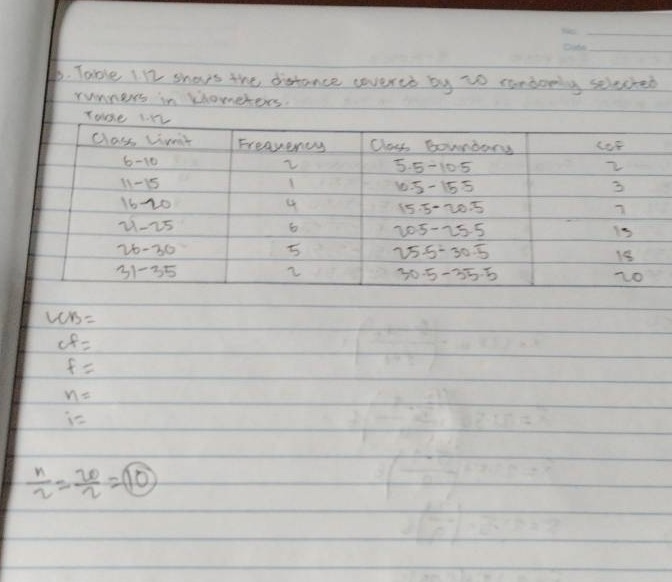 No:
Date
3. Table 1.12 shows the distance covered by 20 randomly selected
runners in kilometers.
Table 1.12
Class Limit Frequency Class Boundary <CF
6-10 2 5.5-10.5 2
11-15 1 10.5-15.5 3
16-20 4 15.5-20.5 7
21-25 6 20.5-25.5 13
26-30 5 25.5-30.5 18
31-35 2 30.5-35.5 20
LCB=
cf=
f=
n=
i=
n/2 = 20/2 = 10